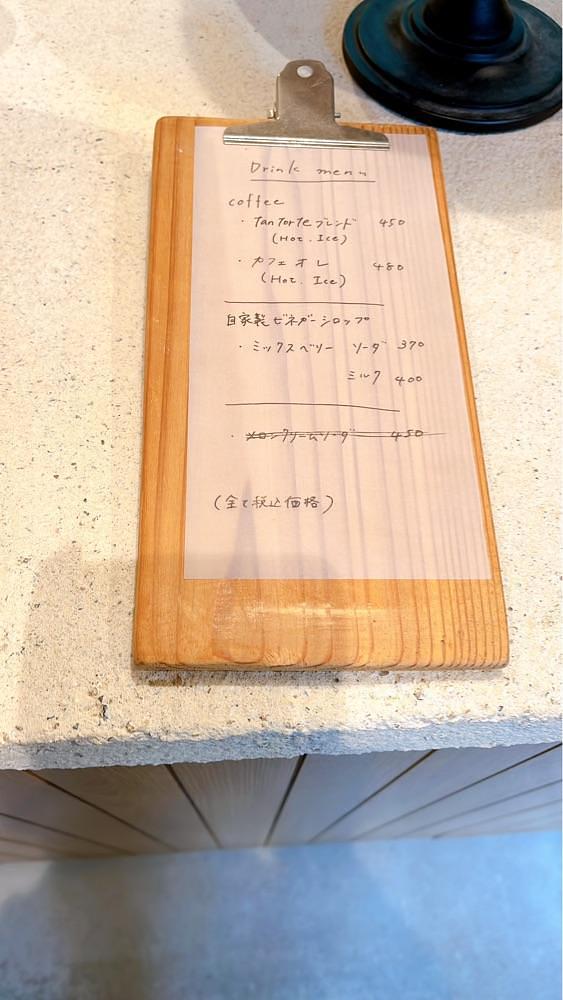 Drink menu
coffee
・tantorteブレンド 450
(Hot. Ice)
・カフェオレ 480
(Hot. Ice)
自家製ビネガーシロップ
・ミックスベリー ソーダ 370
ミルク 400
・メロンクリームソーダ 450
(全て税込価格)